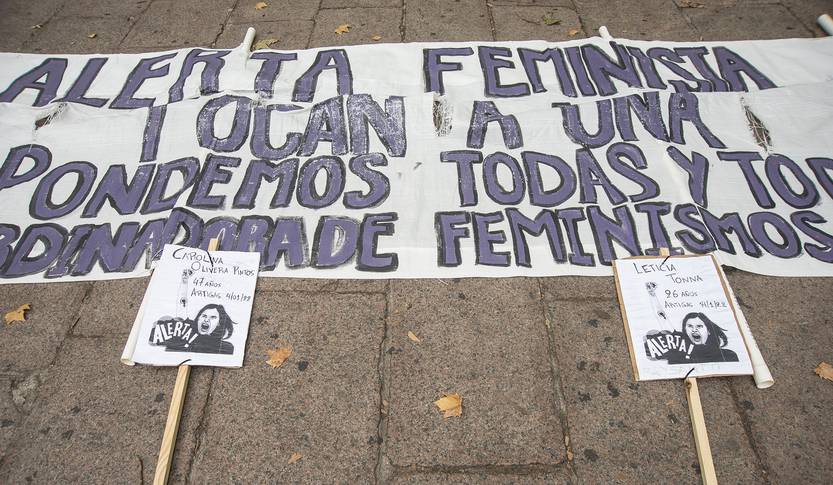 ALERTA FEMINISTA
TOCAN A UNA
PONDEMOS TODAS Y TOD
RDINADORA DE FEMINISMOS
CAROLINA
OLIVERA PINTOS
47 AÑOS
ARTIGAS 4/01/22
ALERTA!
LETICIA
TONNA
26 AÑOS
ARTIGAS
ALERTA!